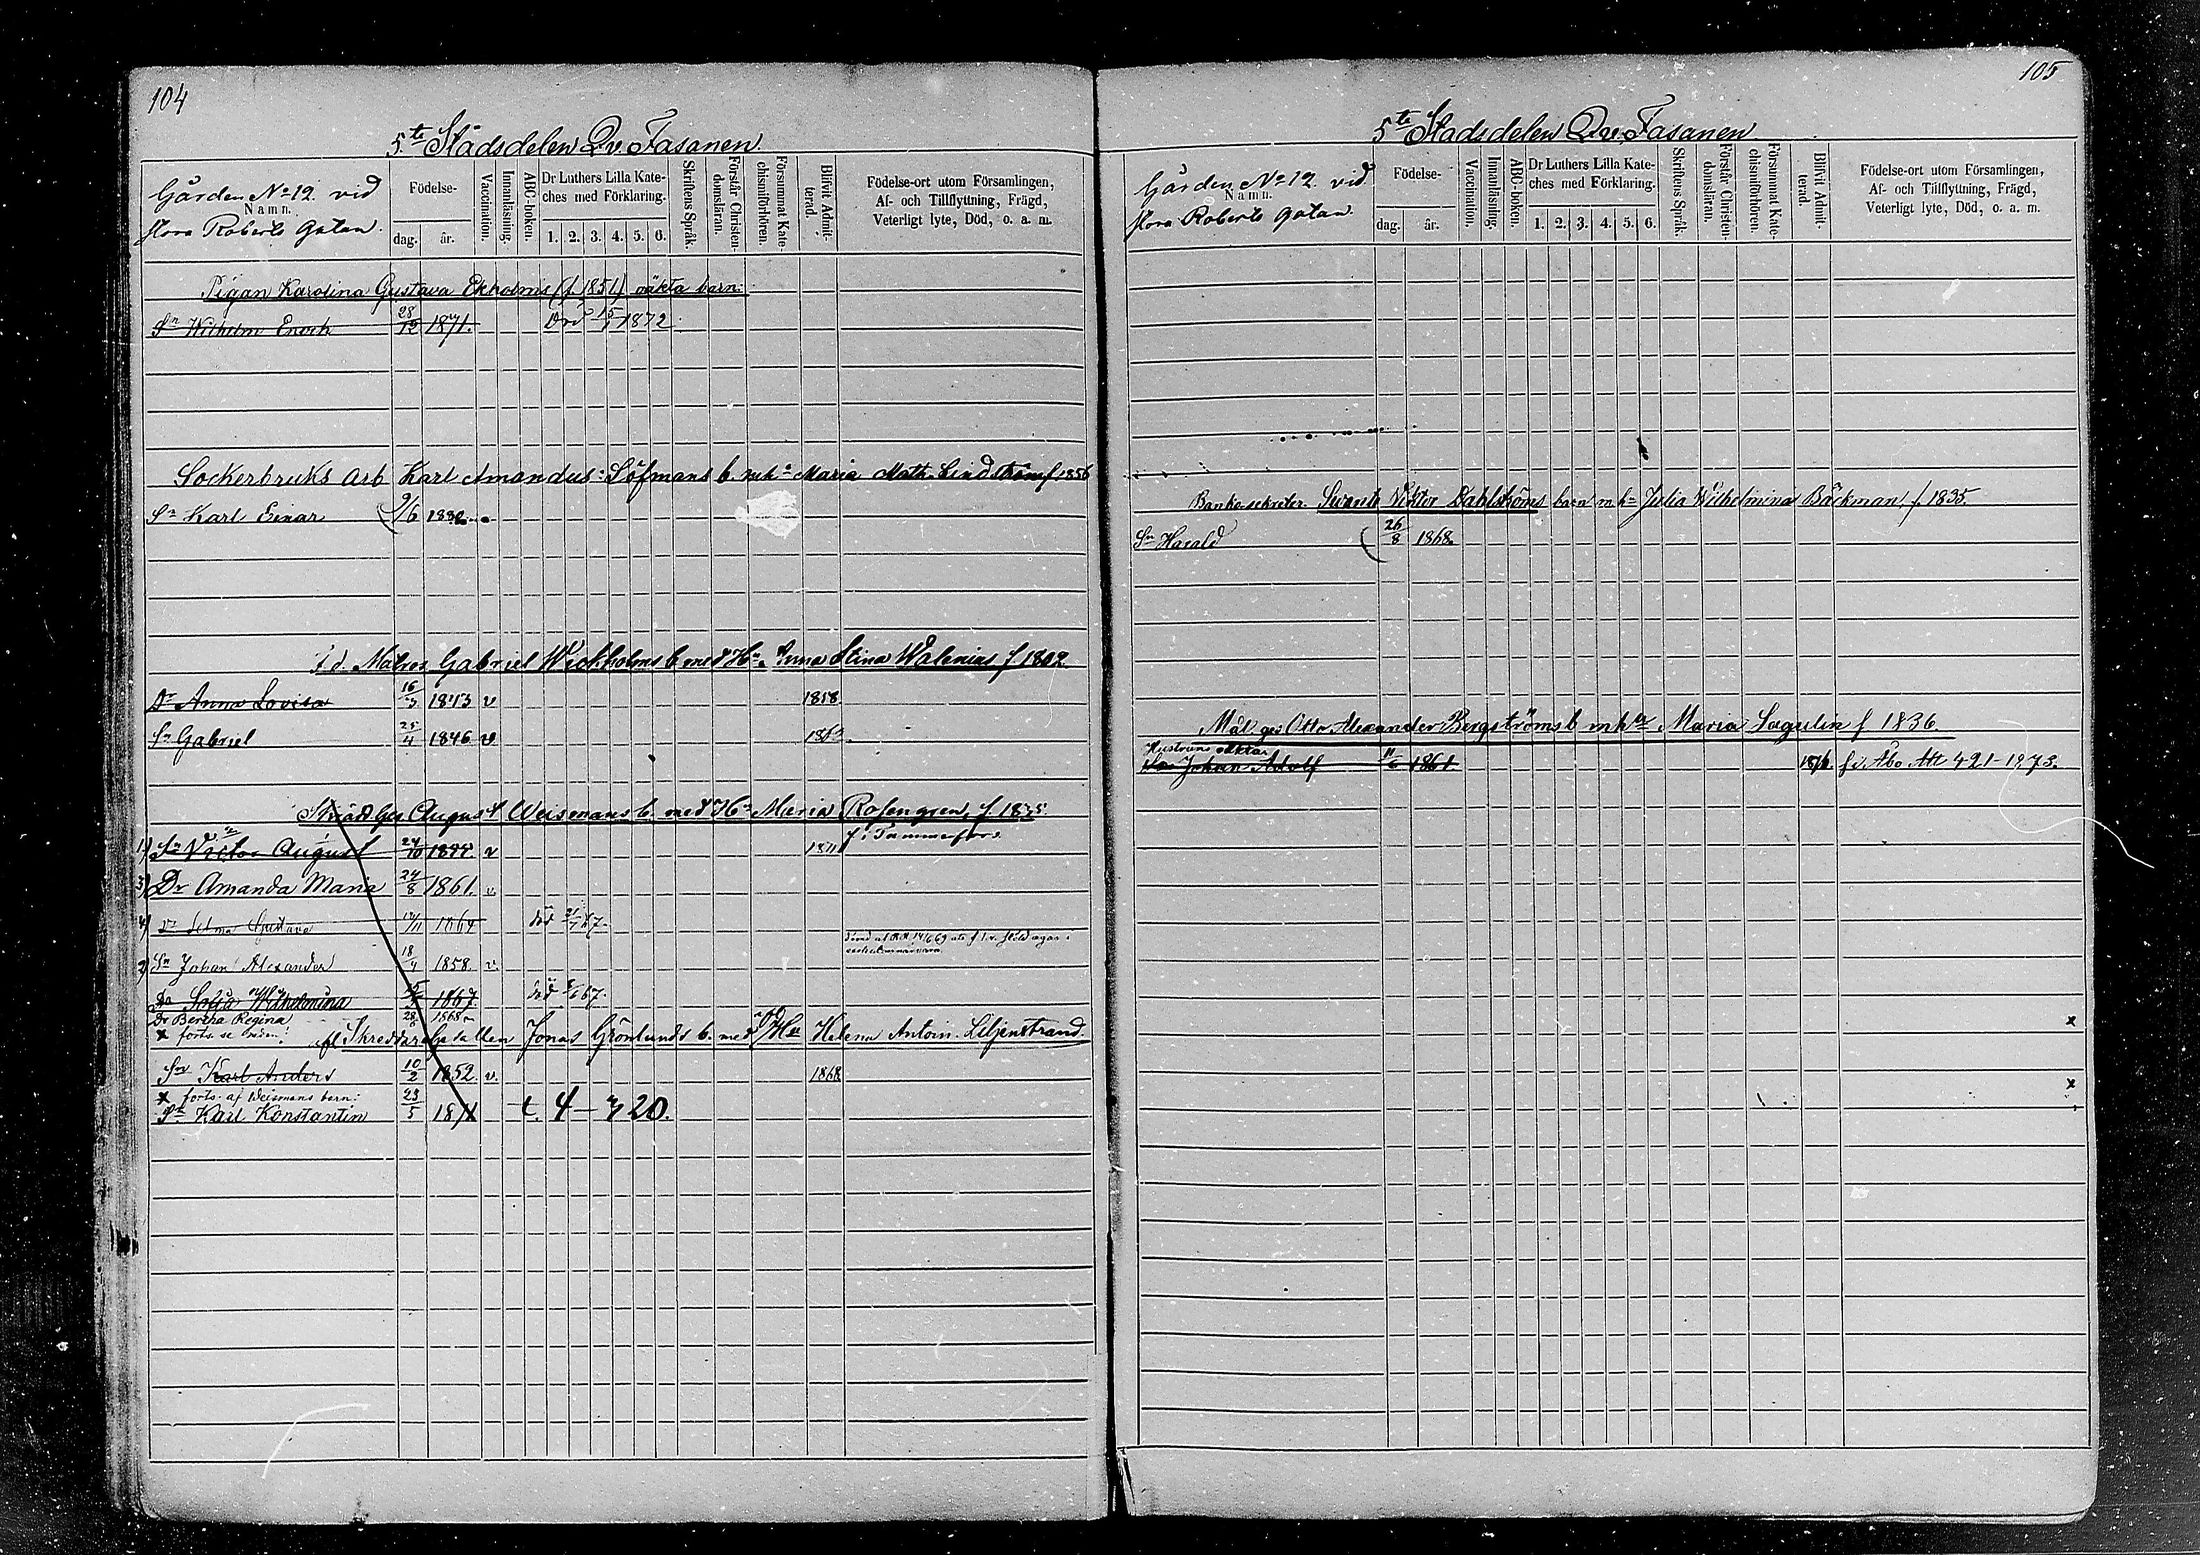 104
5.te Stadsdelen Qv. Fasanen
Gården No 12. vid
Namn.
stora Roberts Gatan.
Födelse-
dag. år.
Vaccination.
Innanläsning.
ABC-boken.
Dr Luthers Lilla Kate-
ches med Förklaring.
1. 2. 3. 4. 5. 6.
Skriftens Språk.
Förstår Christen-
domsläran.
Försummat Kate-
chismiförhören.
Blifvit Admit-
terad.
Födelse-ort utom Församlingen,
Af- och Tillflyttning, Frägd,
Veterligt lyte, Död, o. a. m.
Pigan Karolina Gustava Ekholms (f 1851) oäkta barn:
Sn Wilhelm Enoch 28/12 1871. Död 15/1 1872
Sockerbruks Arb Karl Amandus Löfmans b. m h a Maria Math. Lindström f. 1856
Sn Karl Einar 9/6
f d. Matros Gabriel Wickholms b med Hu. Anna Stina Walenius f 1802
Dr Anna Lovisa 16/3 1843 v 1858
Sn Gabriel 25/4 1846 v
Ges August Weismans b. med Hu Maria Rosengren, f
f. i Tammerfors
1) Sn Victor August v
3) Dr Amanda Maria 24/8 1861. v
4) Dr Selma Gustava 1864 död 67.
2) Sn Johan Alexander 18/4 1858. v.
Dr Sofia Wilhelmina 1867 död 67.
Dr Bertha Regina 28 1868
x forts. se nedan!
Skreddare Gesällen Jonas Grönlunds b. med Hu Helena Antoin. Liljenstrand.
Sn Karl Anders 10/2 1852. v. 1868
x forts. af Weismans barn:
Sn Karl Konstantin 23/5 4 – 20.
105
5te Stadsdelen Qv. Fasanen
Gården No 12. vid
Namn.
stora Roberts Gatan.
Födelse-
dag. år.
Vaccination.
Innanläsning.
ABC-boken.
Dr Luthers Lilla Kate-
ches med Förklaring.
1. 2. 3. 4. 5. 6.
Skriftens Språk.
Förstår Christen-
domsläran.
Försummat Kate-
chismiförhören.
Blifvit Admit-
terad.
Födelse-ort utom Församlingen,
Af- och Tillflyttning, Frägd,
Veterligt lyte, Död, o. a. m.
Banko-sekreter. Svante Viktor Dahlströms barn m. h. Julia Wilhelmina Bäckman, f. 1835.
Sn Harald 26/8 1868.
Mål. ges Otto Alexander Bergströms b mha Maria Sagulin f 1836.
Hustruns oäkta
Johan Adolf 11/6 1861. f. i Åbo Att 421 – 1273.
x
x